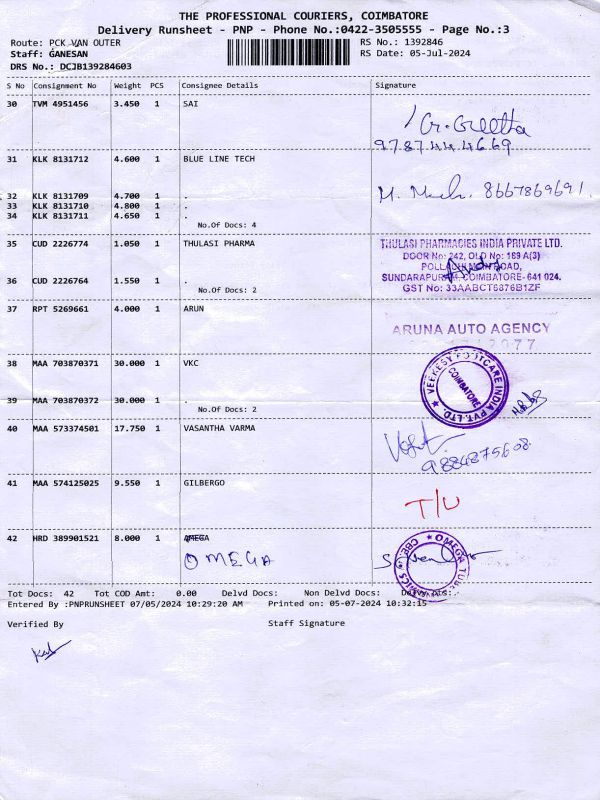 THE PROFESSIONAL COURIERS, COIMBATORE
Delivery Runsheet - PNP - Phone No.:0422-3505555 - Page No.:3
Route: PCK VAN OUTER RS No.: 1392846
Staff: GANESAN RS Date: 05-Jul-2024
DRS No.: DCJB139284603
S No Consignment No Weight PCS Consignee Details Signature
30 TVM 4951456 3.450 1 SAI
G. Geetha
9787444669
31 KLK 8131712 4.600 1 BLUE LINE TECH
32 KLK 8131709 4.700 1 . M. 8667869691.
33 KLK 8131710 4.800 1 .
34 KLK 8131711 4.650 1 .
No.Of Docs: 4
35 CUD 2226774 1.050 1 THULASI PHARMA THULASI PHARMACIES INDIA PRIVATE LTD.
DOOR No: 242, OLD No: 169 A(3)
ROAD,
36 CUD 2226764 1.550 1 . SUNDARAPURAM, COIMBATORE- 641 024.
No.Of Docs: 2 GST No: 33AABCT6876B1ZF
37 RPT 5269661 4.000 1 ARUN
ARUNA AUTO AGENCY
2077
38 MAA 703870371 30.000 1 VKC
VEEKESY FOOTCARE INDIA PVT. LTD.
COIMBATORE
39 MAA 703870372 30.000 1 .
No.Of Docs: 2
40 MAA 573374501 17.750 1 VASANTHA VARMA
9884875608
41 MAA 574125025 9.550 1 GILBERGO
T/U
42 HRD 389901521 8.000 1 AMEGA
OMEGA
OMEGA
Tot Docs: 42 Tot COD Amt: 0.00 Delvd Docs: Non Delvd Docs:
Entered By :PNPRUNSHEET 07/05/2024 10:29:20 AM Printed on: 05-07-2024 10:32:15
Verified By Staff Signature